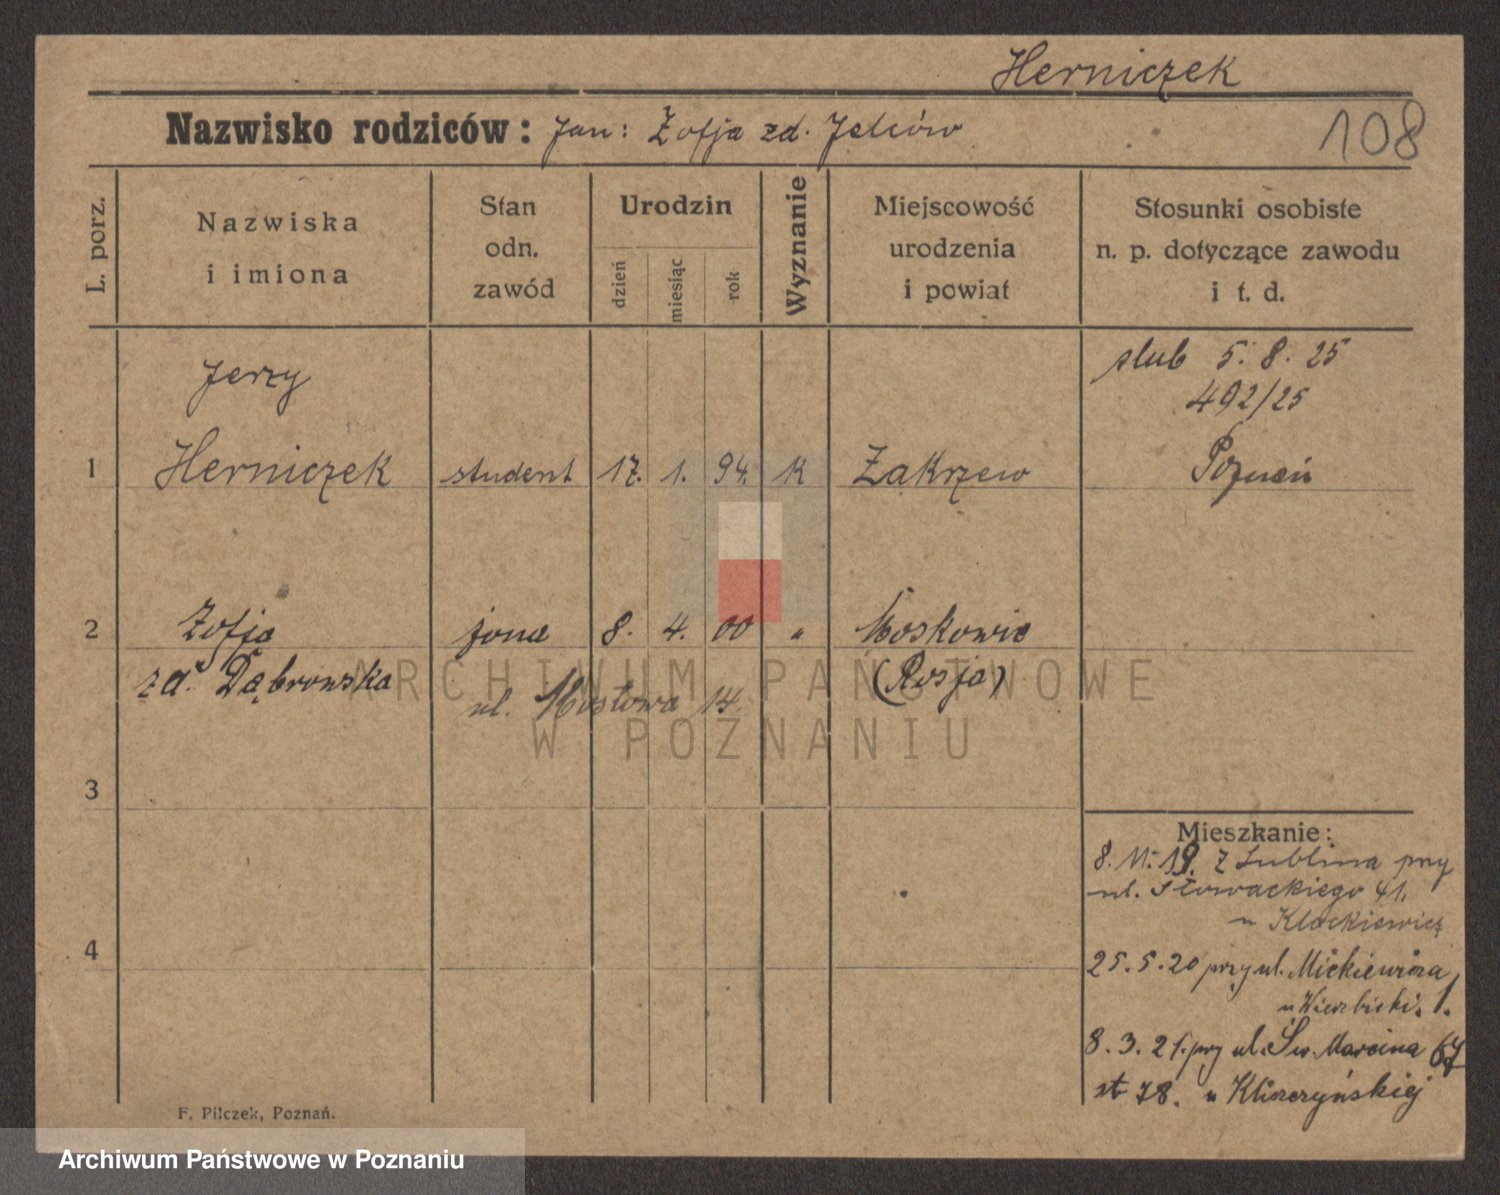 Herniczek
Nazwisko rodziców: Jan: Zofja zd.
108
L. porz.
Nazwiska
i imiona
Stan
odn.
zawód
Urodzin
dzień
miesiąc
rok
Wyznanie
Miejscowość
urodzenia
i powiat
Stosunki osobiste
n. p. dotyczące zawodu
i t. d.
Jerzy
ślub 5. 8. 25
492/25
1 Herniczek student 17. 1. 94. K Zakrzew Poznań
2 Zofja żona 8. 4. 00 „ Moskowie
zd. Dąbrowska (Rosja)
ul. Mostowa 14.
ARCHIWUM PAŃSTWOWE
W POZNANIU
3
Mieszkanie:
8. 11. 19. z Lublina przy
ul. Słowackiego 41.
u Klockiewicz
4
25. 5. 20 przy ul. Mickiewicza 1.
u Wierzbicki.
8. 3. 21. przy ul. Św. Marcina 67
st 78. u
F. Pilczek, Poznań.
Archiwum Państwowe w Poznaniu